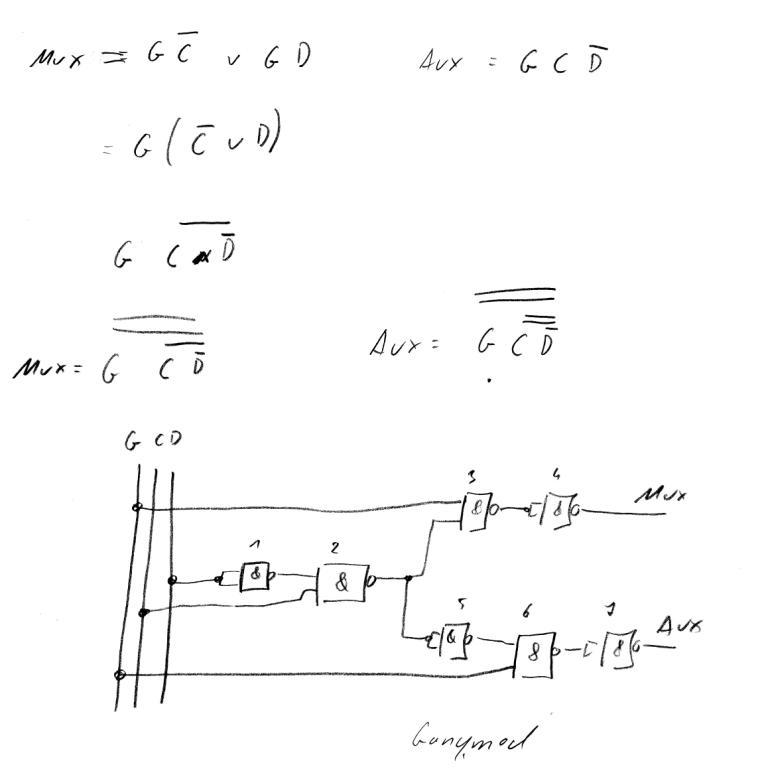 Mux = G C̅ ∨ G D
Aux = G C D̅
= G ( C̅ ∨ D )
G C̅ ̅D̅̅
Mux = G̿ ̿ ̿C̅ ̅D̅̅
Aux = G̿ ̿C̿ ̿D̅̿
G C D
3 4
& & Mux
1 2
& &
5 6 7
& & & Aux
Ganymed